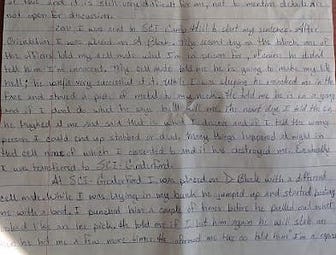 this and it is still very difficult for me, not to mention details are
not open for discussion.
I was sent to SCI Camp Hill to start my sentence. After
Orientation I was placed on A Block. My second day on the block one of
the officers told my cell mate what I'm in prison for, of course he didnt
tell him I'm innocent. My cell mate told me he is going to make my life
hell; he was very successful at it, I was sleeping he smoked me in the
face and should a piece of metal to my neck. He told me he is
and if I dont do what he says kill me. The next day I told the
he and said that is what I deserve and if I told the wrong
person I could end up stabbed or dead. Many things happened at night in
that cell and it has destroyed me. Eventually
I was transferred to SCI-Graterford.
At SCI-Graterford I was placed on D Block with a different
cell mate. While I was laying in my bunk he jumped up and started beating
me with a boot. I punched him a couple of times before he pulled out what
looked like an ice pick. He told me if I hit him again he will stab me
he hit me a few more times. He told him "I'm a